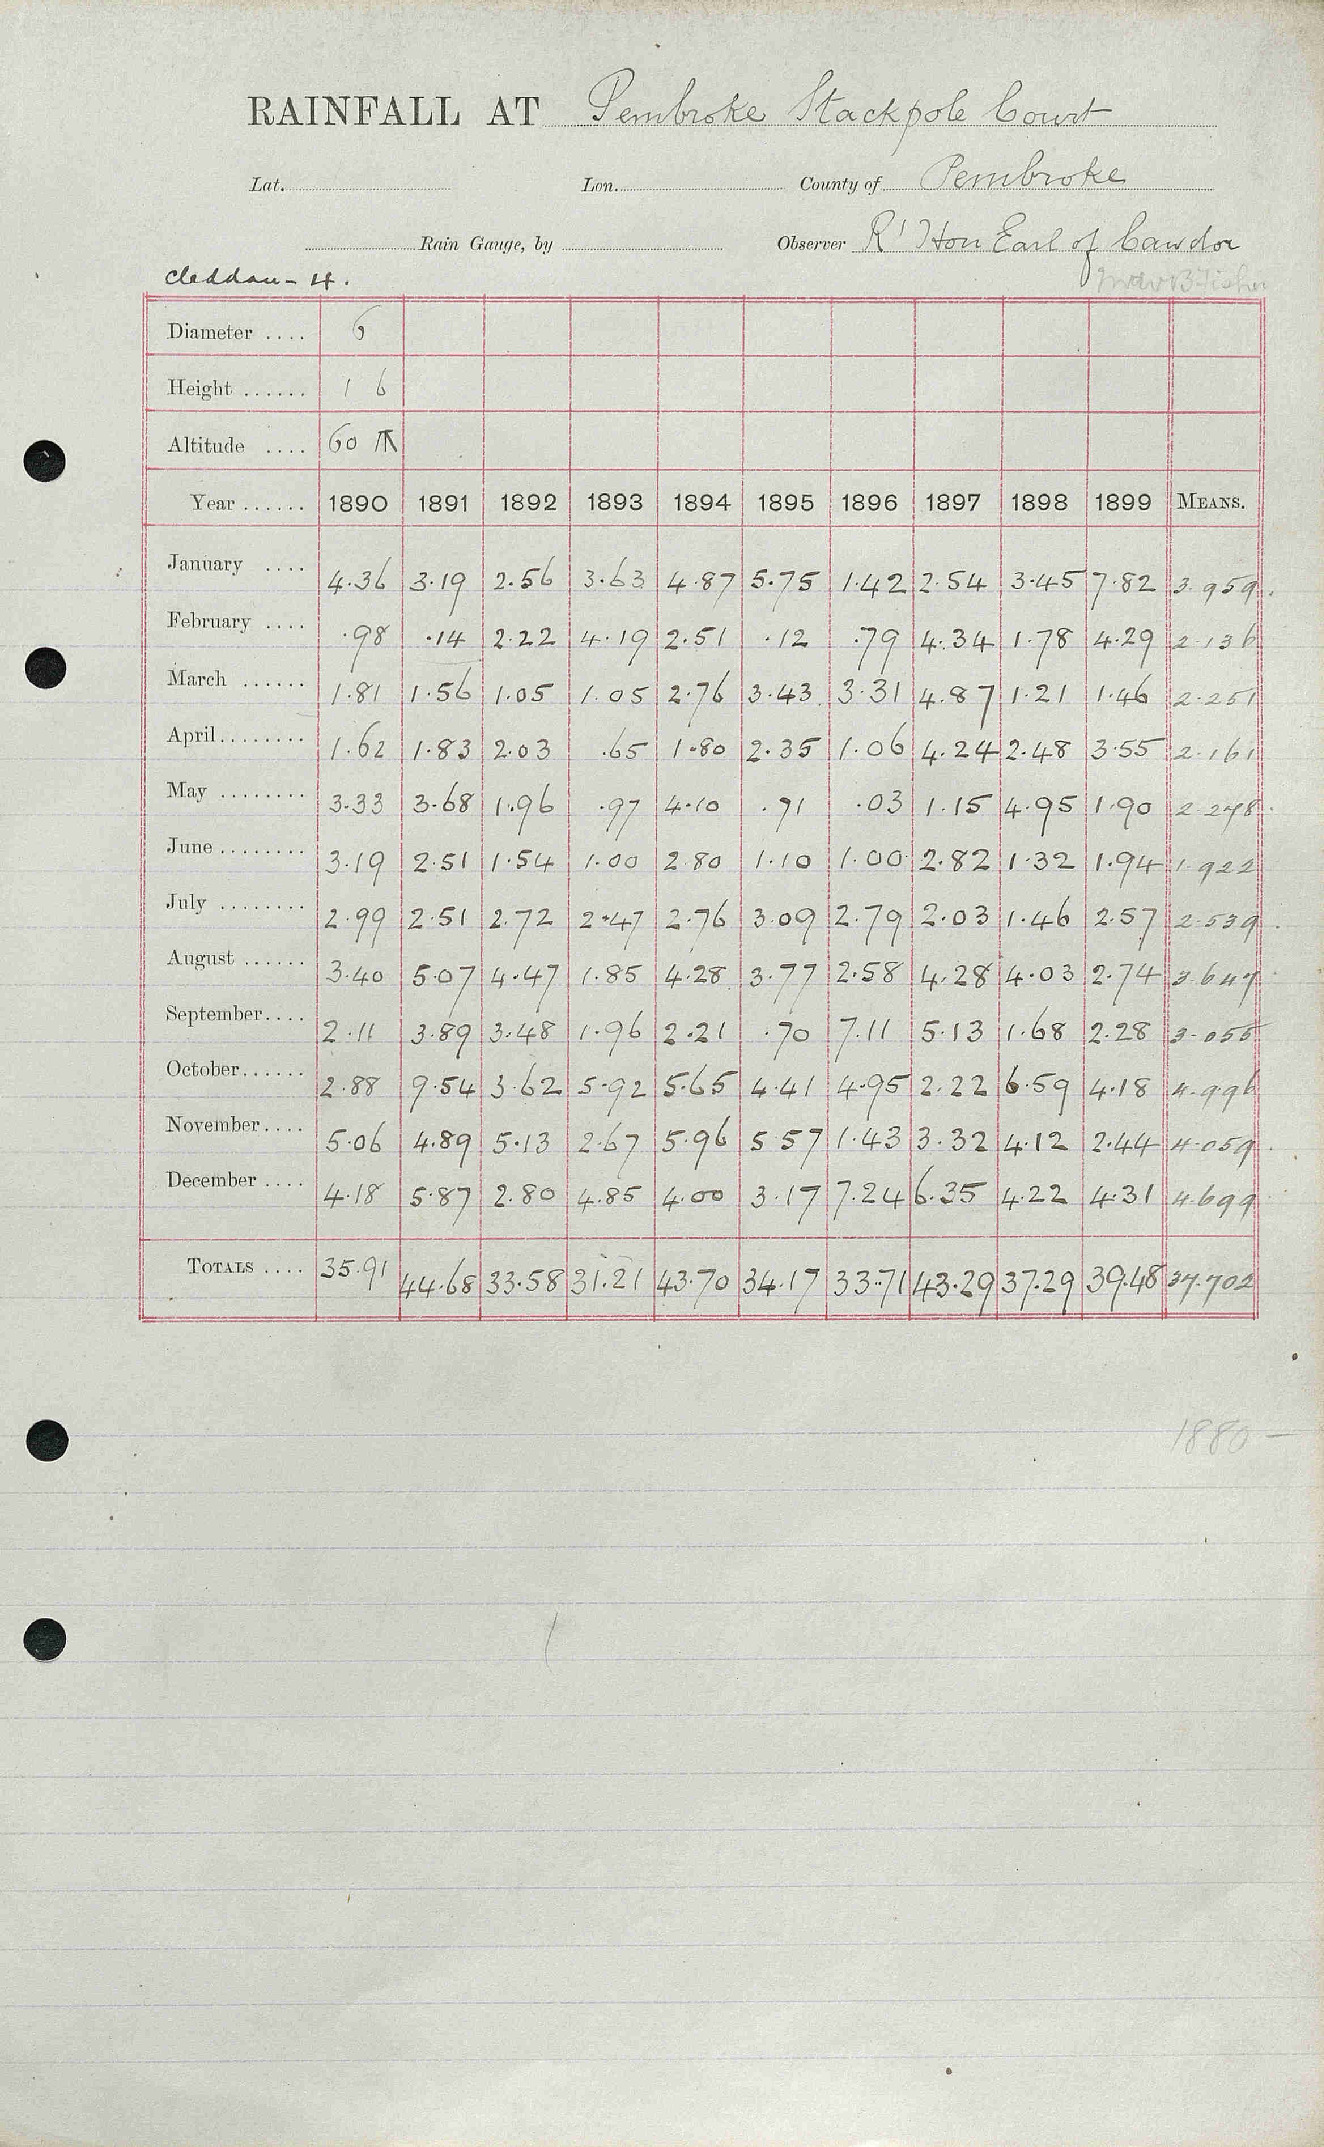 RAINFALL AT Pembroke Stackpole Court
Lat. Lon. County of Pembroke
Rain Gauge, by Observer Rt Hon Earl of Cawdor
Cleddau - 4.
Diameter .... 6
Height ...... 1 6
Altitude .... 60 ft
Year ...... 1890 1891 1892 1893 1894 1895 1896 1897 1898 1899 MEANS.
January .... 4.36 3.19 2.56 3.63 4.87 5.75 1.42 2.54 3.45 7.82 3.959
February .... .98 .14 2.22 4.19 2.51 .12 .79 4.34 1.78 4.29 2.136
March ...... 1.81 1.56 1.05 1.05 2.76 3.43 3.31 4.87 1.21 1.46 2.251
April ........ 1.62 1.83 2.03 .65 1.80 2.35 1.06 4.24 2.48 3.55 2.161
May ........ 3.33 3.68 1.96 .97 4.10 .71 .03 1.15 4.95 1.90 2.278
June ........ 3.19 2.51 1.54 1.00 2.80 1.10 1.00 2.82 1.32 1.94 1.922
July ........ 2.99 2.51 2.72 2.47 2.76 3.09 2.79 2.03 1.46 2.57 2.539
August ...... 3.40 5.07 4.47 1.85 4.28 3.77 2.58 4.28 4.03 2.74 3.647
September .... 2.11 3.89 3.48 1.96 2.21 .70 7.11 5.13 1.68 2.28 3.055
October ...... 2.88 9.54 3.62 5.92 5.65 4.41 4.95 2.22 6.59 4.18 4.996
November .... 5.06 4.89 5.13 2.67 5.96 5.57 1.43 3.32 4.12 2.44 4.059
December .... 4.18 5.87 2.80 4.85 4.00 3.17 7.24 6.35 4.22 4.31 4.699
TOTALS .... 35.91 44.68 33.58 31.21 43.70 34.17 33.71 43.29 37.29 39.48 37.702
1880 -